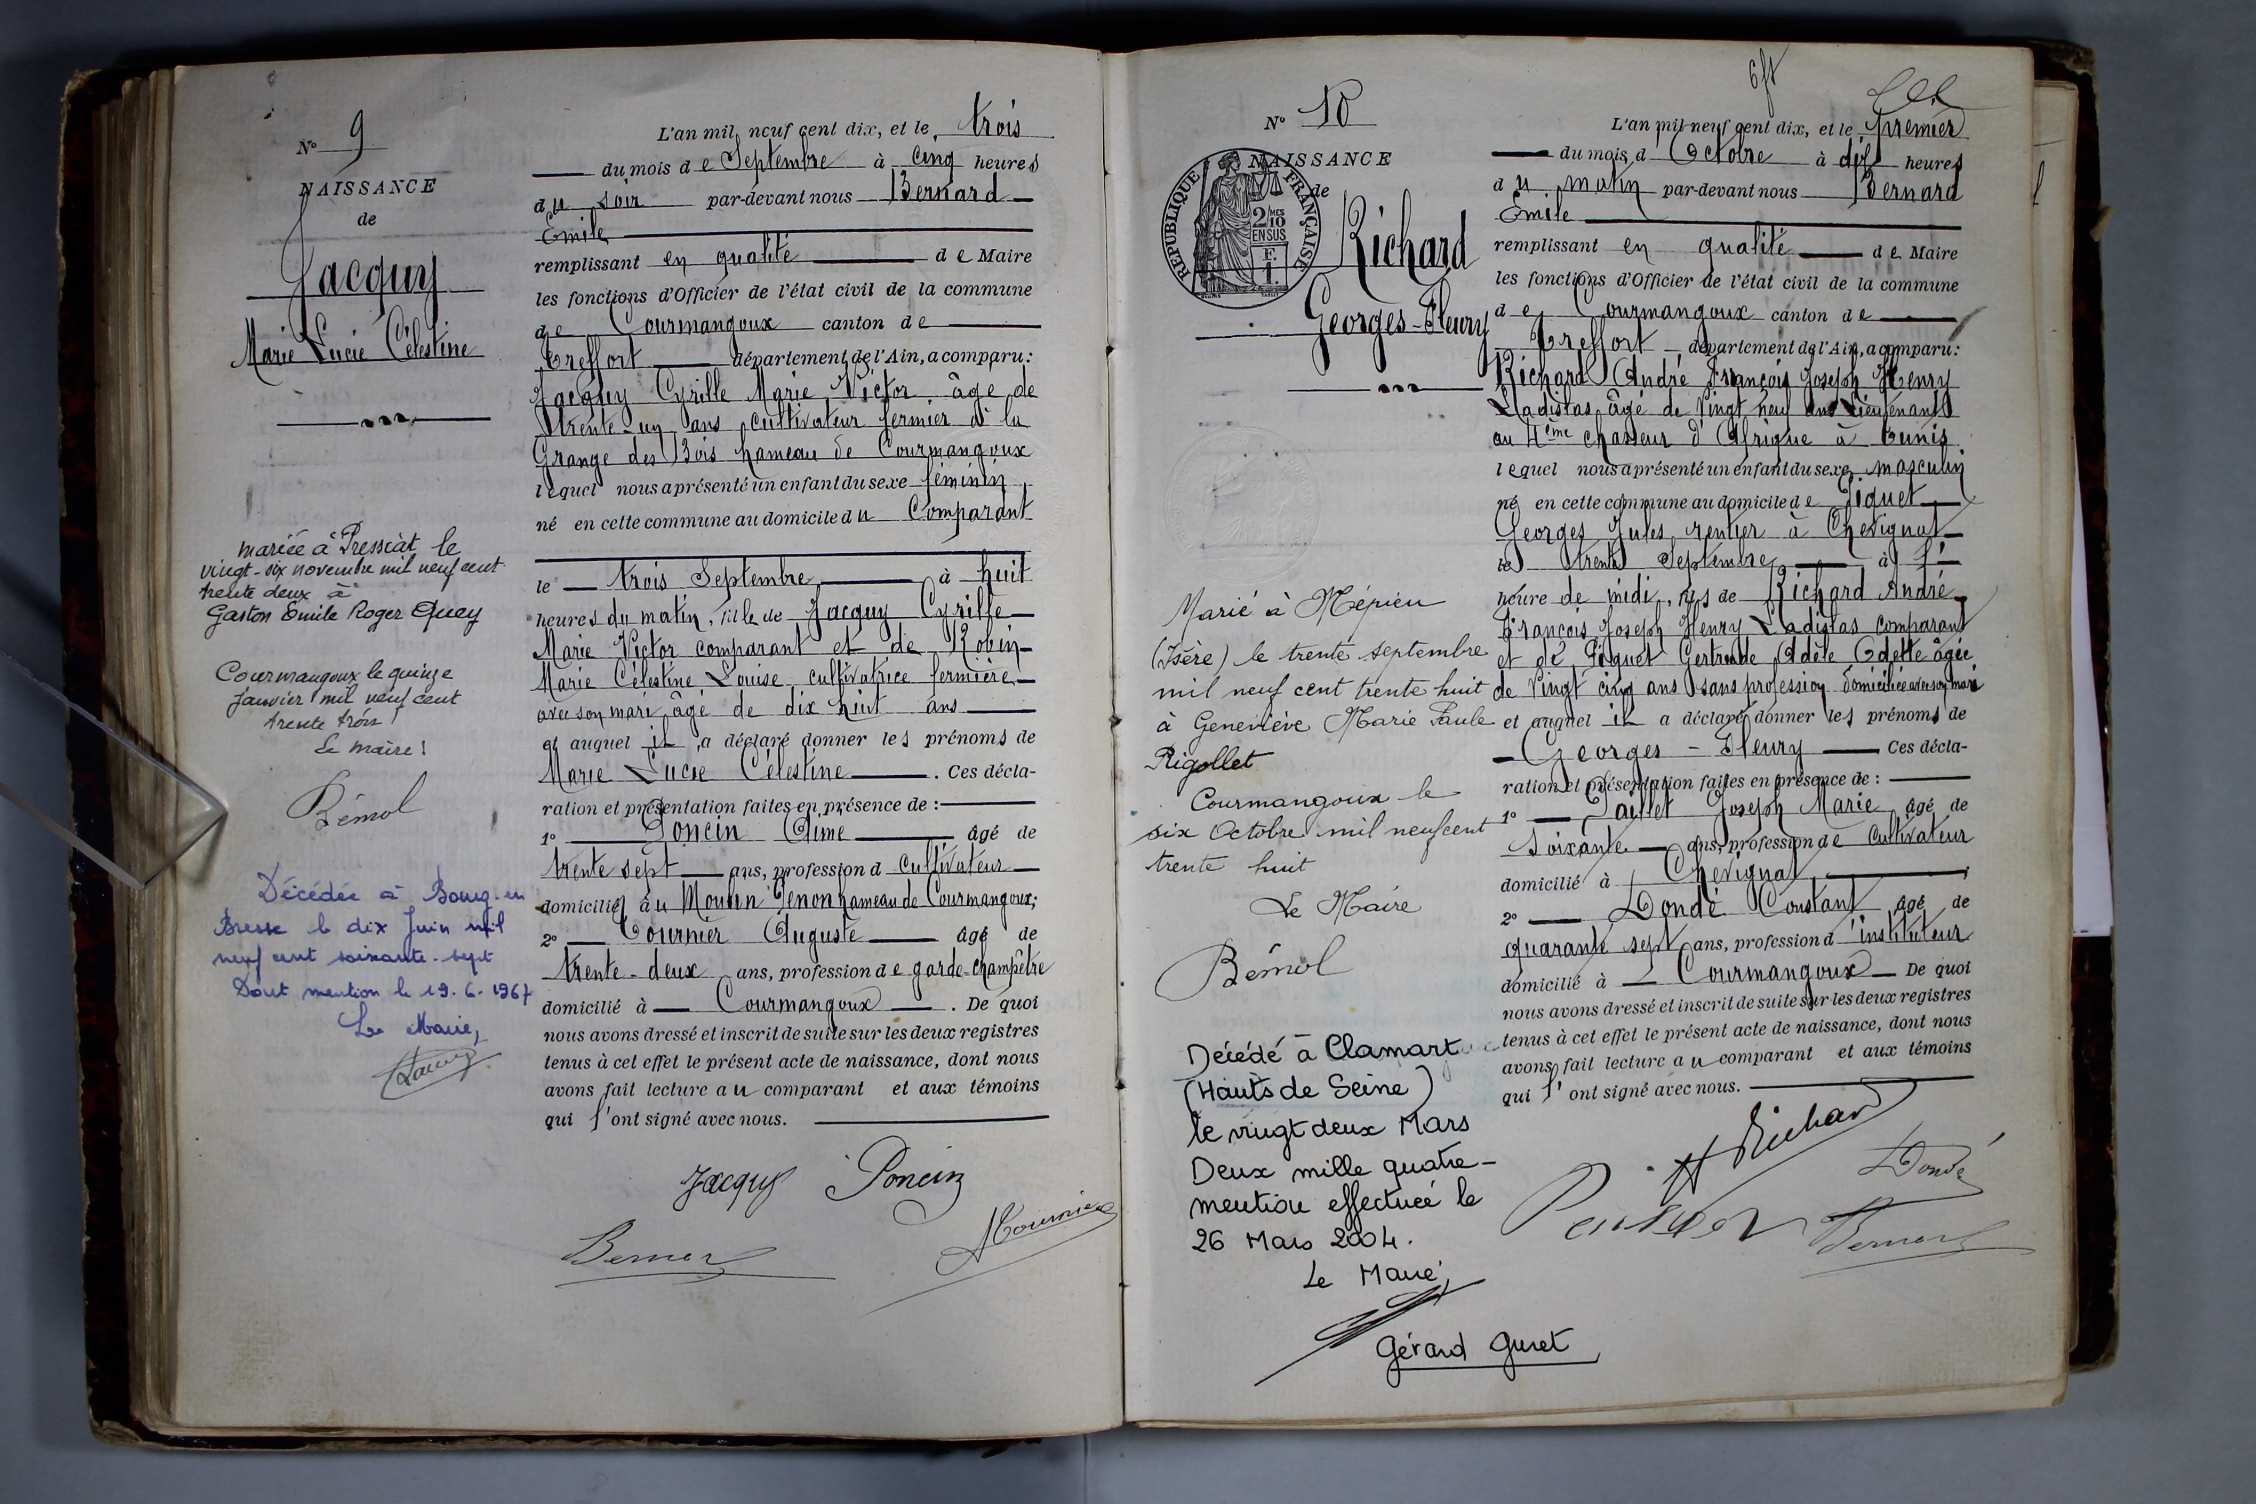 N° 9
NAISSANCE
de
Jacquy
Marie Lucie Célestine
mariée à Pressiat le
vingt-six novembre mil neuf cent
trente deux à
Gaston Emile Roger Quey
Courmangoux le quinze
Janvier mil neuf cent
trente trois
Le maire :
Bémol
Décédée à Bourg-en
Bresse le dix Juin mil
neuf cent soixante-sept
Dont mention le 19.6.1967
Le Maire,
L'an mil neuf cent dix, et le trois
du mois de Septembre à cinq heures
du soir par-devant nous Bernard
Emile
remplissant en qualité de Maire
les fonctions d'Officier de l'état civil de la commune
de Courmangoux canton de
Treffort département de l'Ain, a comparu :
Jacquy Cyrille Marie Victor âge de
trente-un ans cultivateur fermier à la
Grange des Bois hameau de Courmangoux
lequel nous a présenté un enfant du sexe féminin
né en cette commune au domicile du Comparant
le trois Septembre à huit
heures du matin, fille de Jacquy Cyrille
Marie Victor comparant et de Robin
Marie Célestine Louise cultivatrice fermière
avec son mari âgé de dix huit ans
et auquel il a déclaré donner les prénoms de
Marie Lucie Célestine. Ces décla-
ration et présentation faites en présence de :
1° Poncin Aimé âgé de
trente sept ans, profession d cultivateur
domicilié au Moulin Genon hameau de Courmangoux;
2° Tournier Auguste âgé de
trente-deux ans, profession de garde-champêtre
domicilié à Courmangoux. De quoi
nous avons dressé et inscrit de suite sur les deux registres
tenus à cet effet le présent acte de naissance, dont nous
avons fait lecture au comparant et aux témoins
qui l'ont signé avec nous.
Jacquy Poncin
Bernard
ATournier
6ft
N° 10
NAISSANCE
de
REPUBLIQUE FRANÇAISE
2 MES
10
EN SUS
F.
1.
Richard
Georges-Fleury
Marié à Mépieu
(Isère) le trente septembre
mil neuf cent trente huit
à Geneviève Marie Paule
Rigollet
Courmangoux le
six Octobre mil neuf cent
trente huit
Le Maire
Bémol
Décédé à Clamart
(Hauts de Seine)
le vingt deux Mars
Deux mille quatre-
mention effectuée le
26 Mars 2004.
Le Maire,
Gérard Guret
L'an mil neuf cent dix, et le premier
du mois d'Octobre à dix heures
du matin par-devant nous Bernard
Emile
remplissant en qualité de Maire
les fonctions d'Officier de l'état civil de la commune
de Courmangoux canton de
Treffort département de l'Ain, a comparu :
Richard André François Joseph Henry
Ladislas âgé de vingt neuf ans Lieutenant
au 4ème chasseur d'Afrique à Tunis
lequel nous a présenté un enfant du sexe masculin
né en cette commune au domicile de Piquet
Georges Jules rentier à Chevignat
le trente Septembre à l'
heure de midi, fils de Richard André
François Joseph Henry Ladislas comparant
et de Piquet Gertrude Adèle Odette âgée
de vingt cinq ans sans profession domiciliée avec son mari
et auquel il a déclaré donner les prénoms de
Georges - Fleury Ces décla-
ration et présentation faites en présence de :
1° Paillet Joseph Marie âgé de
soixante ans, profession de cultivateur
domicilié à Chevignat
2° Dondé Constant âgé de
quarante sept ans, profession d'instituteur
domicilié à Courmangoux De quoi
nous avons dressé et inscrit de suite sur les deux registres
tenus à cet effet le présent acte de naissance, dont nous
avons fait lecture au comparant et aux témoins
qui l'ont signé avec nous.
H Richard
Dondé
Bernard